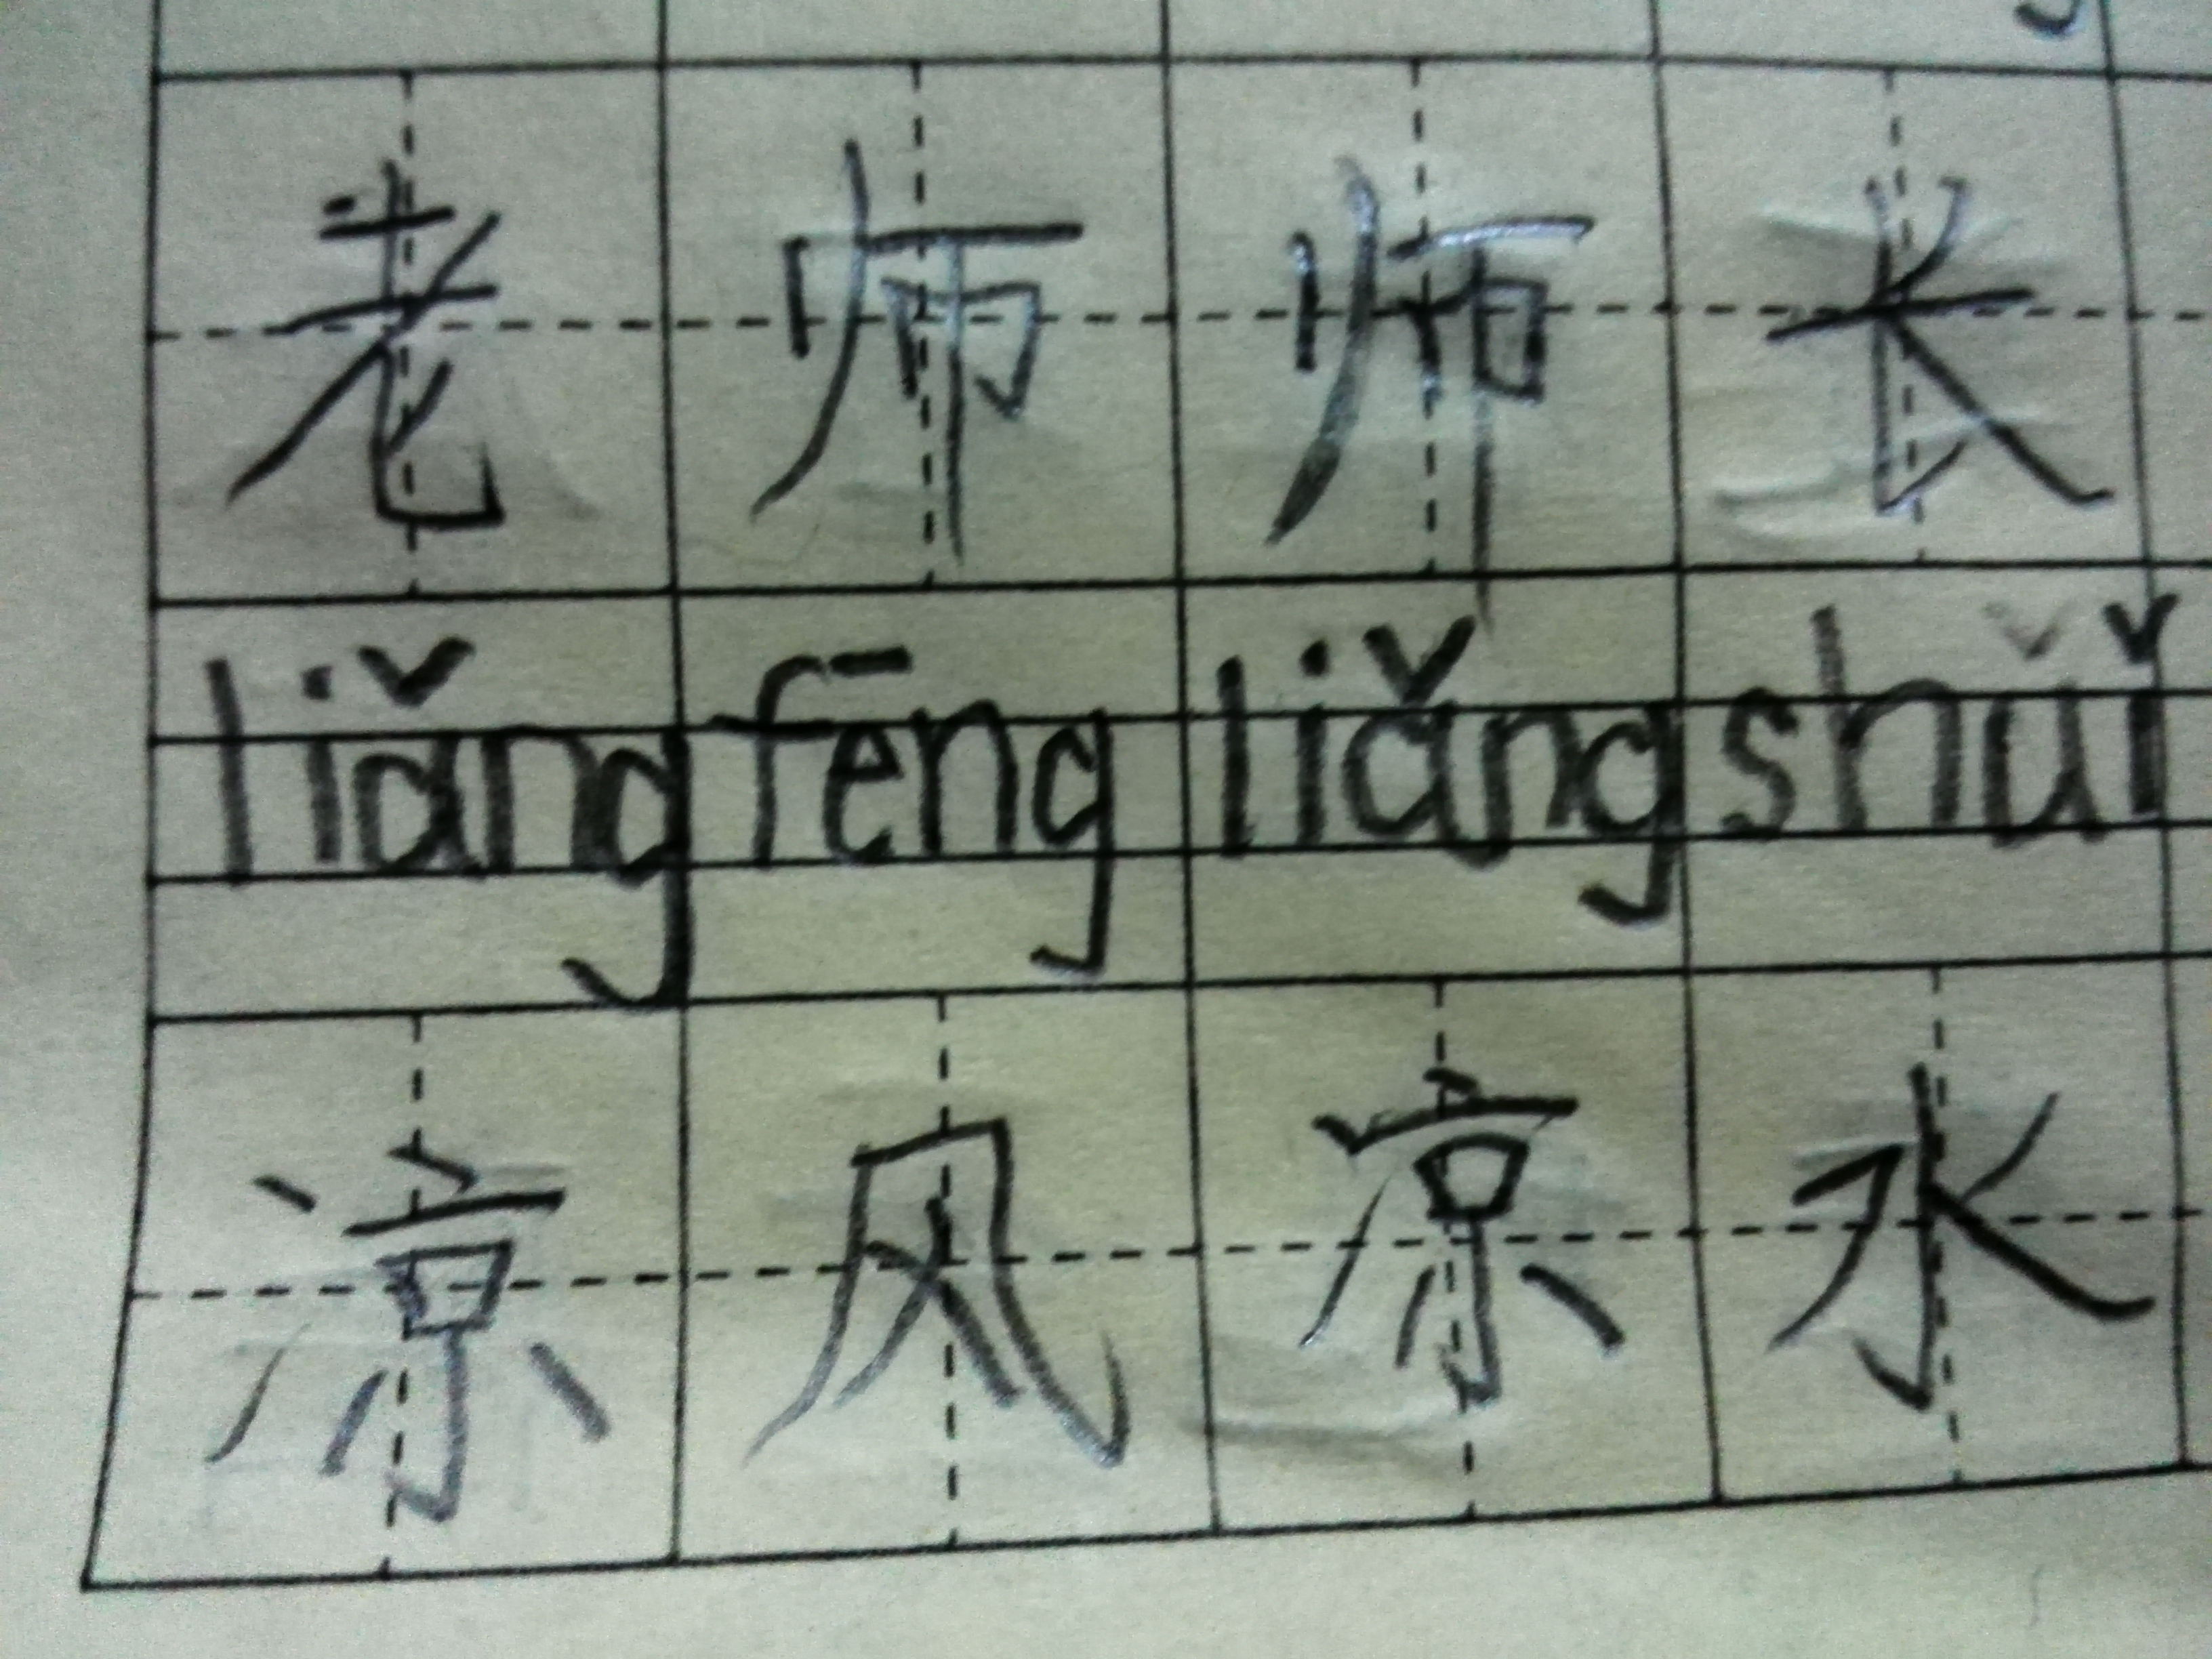 老师师长
liǎng fēng liǎng shuǐ
凉风凉水